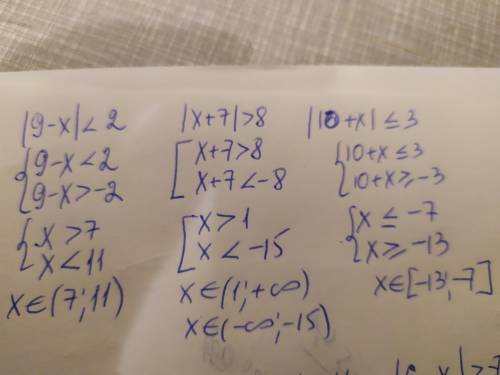 |9-x|<2
{9-x<2
{9-x>-2
{x>7
{x<11
x∈(7;11)
|x+7|>8
[x+7>8
[x+7<-8
[x>1
[x<-15
x∈(1;+∞)
x∈(-∞;-15)
|10+x|≤3
{10+x≤3
{10+x≥-3
{x≤-7
{x≥-13
x∈[-13;-7]